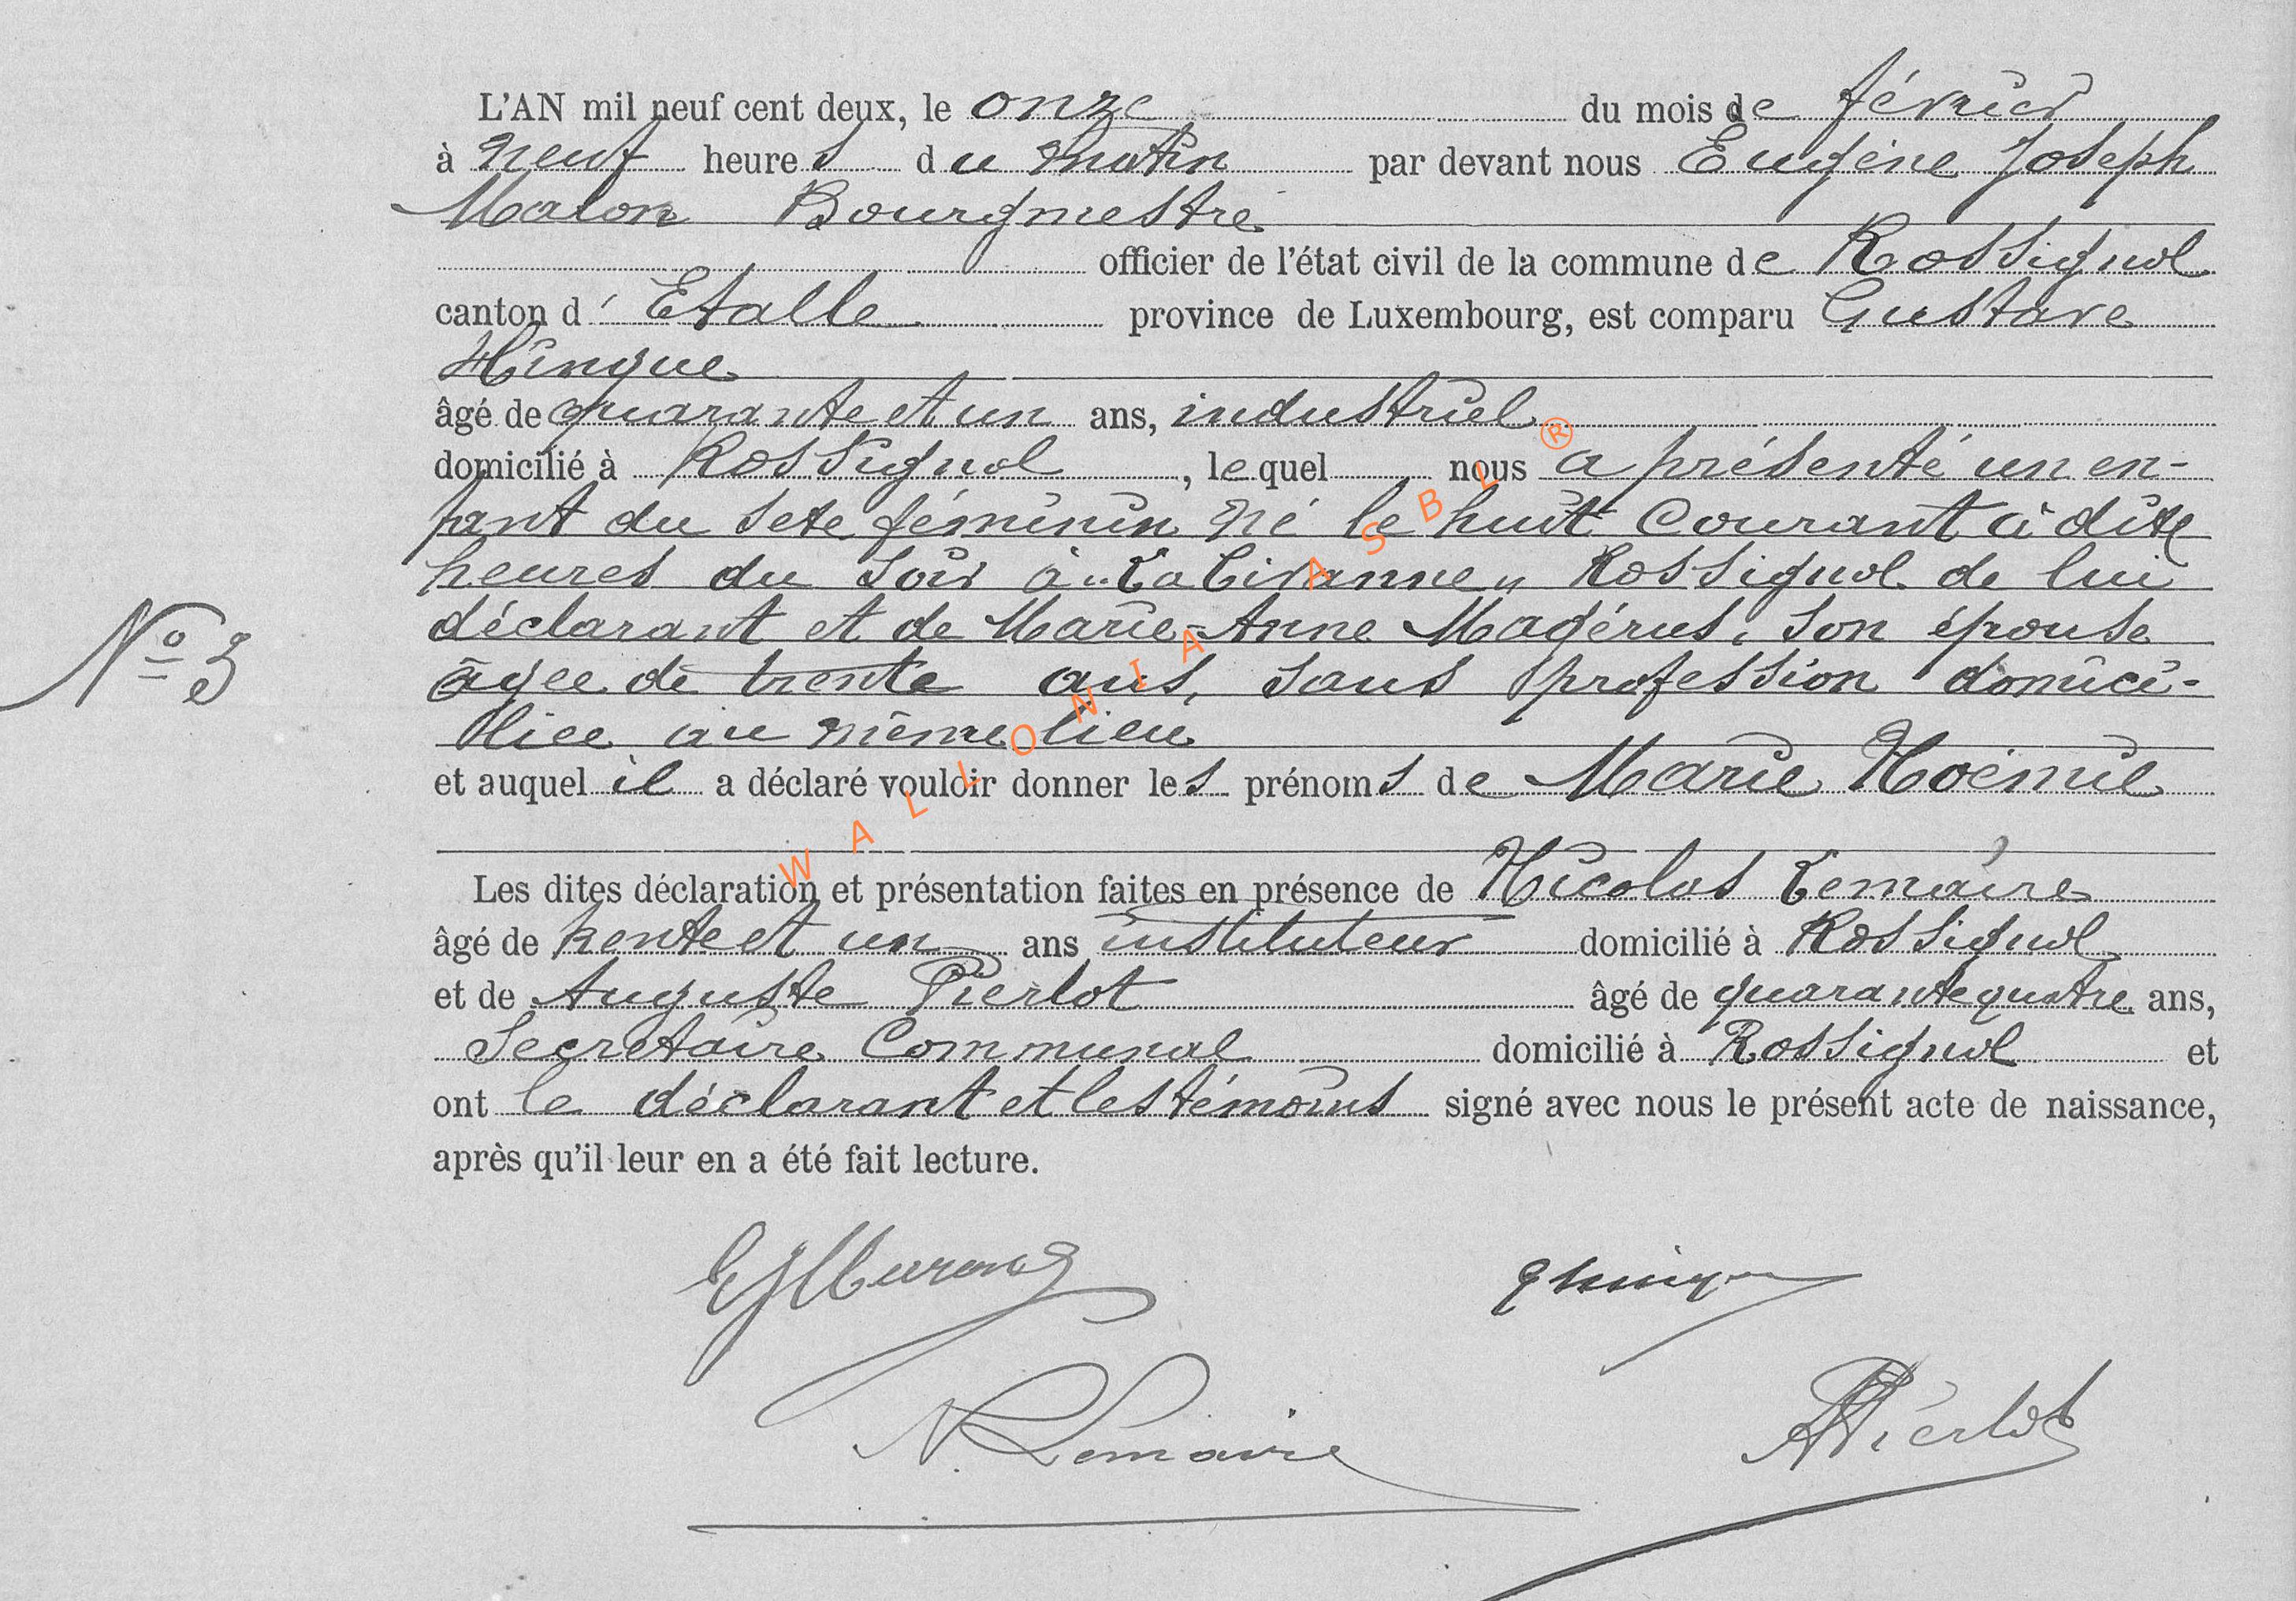 L'AN mil neuf cent deux, le onze du mois de février
à neuf heures du matin par devant nous Eugène Joseph
Bourgmestre
officier de l'état civil de la commune de Rossignol
canton d'Etalle province de Luxembourg, est comparu Gustave
Hinque
âgé de quarante et un ans, industriel
domicilié à Rossignol, lequel nous a présenté un en-
fant du sexe féminin né le huit courant à dix
heures du soir à „La Civanne„ Rossignol de lui
déclarant et de Marie-Anne Magérus, son épouse
âgée de trente ans, sans profession domici-
liée au même lieu
N° 3
et auquel il a déclaré vouloir donner les prénoms de Marie Noémie
Les dites déclaration et présentation faites en présence de Nicolas Lemaire
âgé de trente et un ans instituteur domicilié à Rossignol
et de Auguste Pierlot âgé de quarante quatre ans,
Secrétaire Communal domicilié à Rossignol et
ont le déclarant et les témoins signé avec nous le présent acte de naissance,
après qu'il leur en a été fait lecture.
N. Lemaire
APierlot
WALLONIA ASBL ®